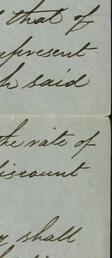 that of
represent
said
the rate of
discount
shall